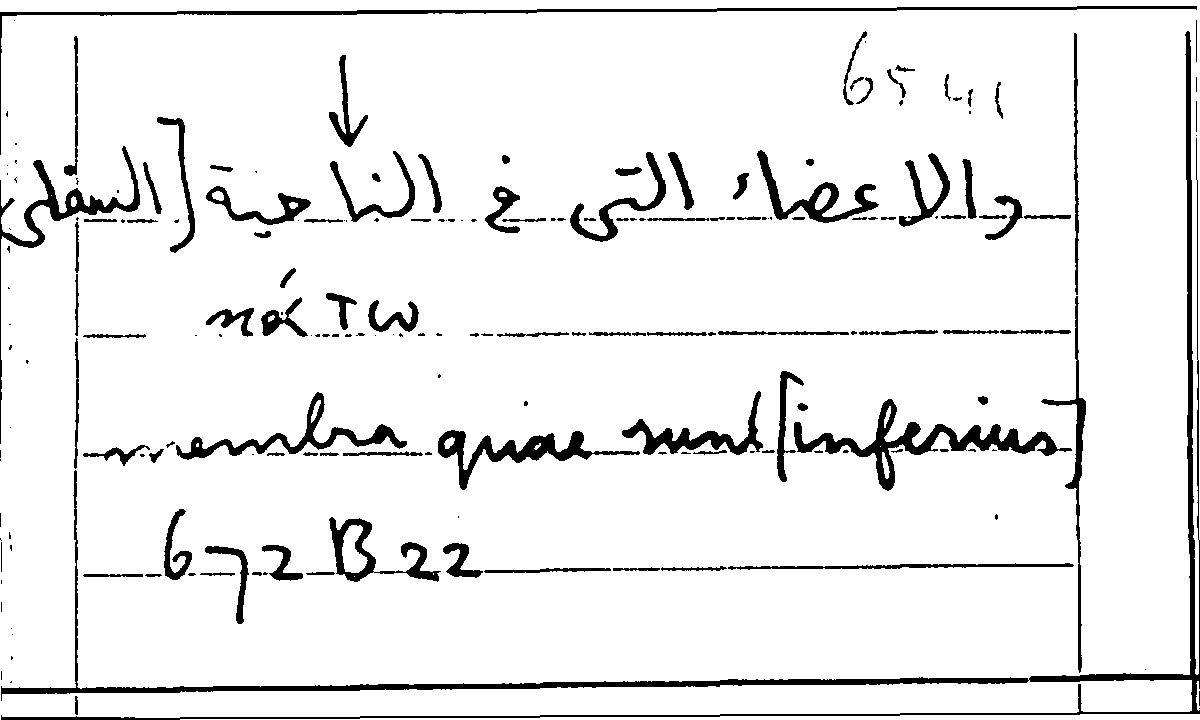 6541
والاعضاء التى فى الناحية [السفلى]
κάτω
membra quae sunt [inferius]
672 B 22